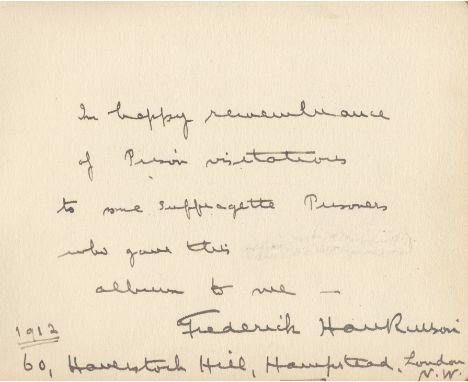 In happy remembrance
of Prison visitations
to some Suffragette Prisoners
who gave this
album to me —
1912 Frederick Hankinson
60, Haverstock Hill, Hampstead, London
N.W.